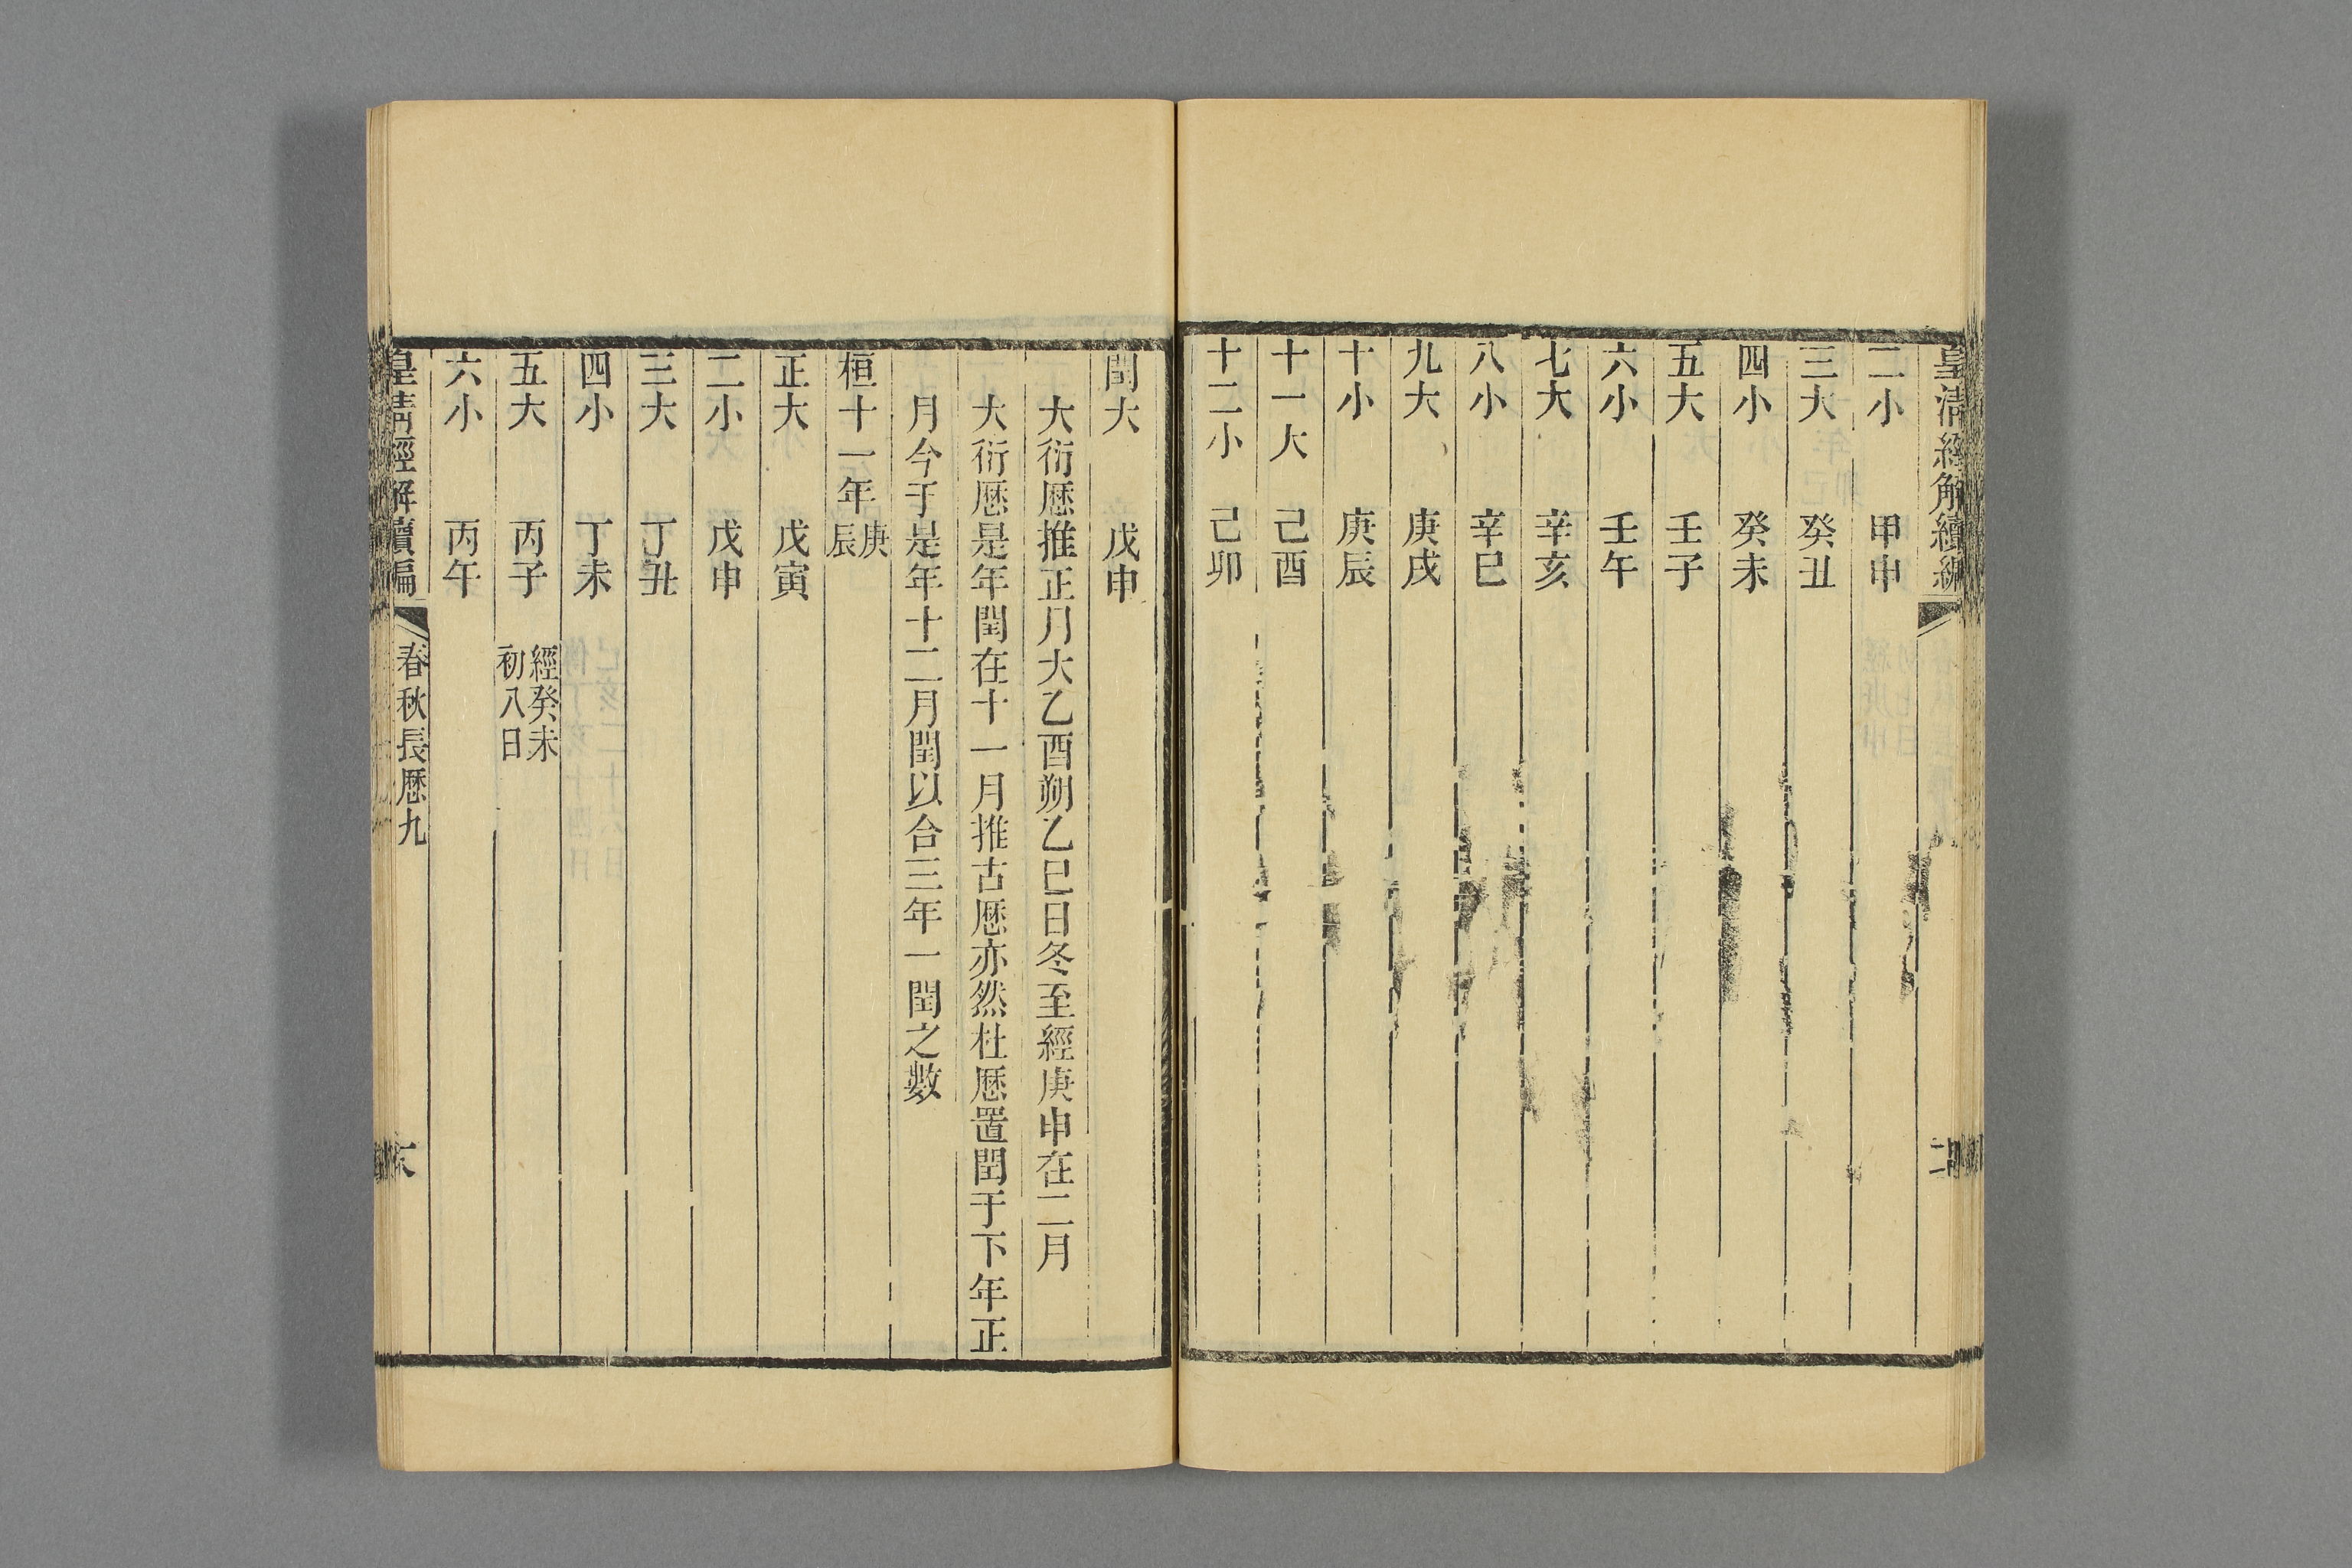 皇清經解續編
二小 甲申
三大 癸丑
四小 癸未
五大 壬子
六小 壬午
七大 辛亥
八小 辛巳
九大 庚戌
十小 庚辰
十一大 己酉
十二小 己卯
閏大 戊申
大衍厯推正月大乙酉朔乙巳日冬至經庚申在二月
大衍厯是年閏在十一月推古厯亦然杜厯置閏于下年正
月今于是年十二月閏以合三年一閏之數
桓十一年庚辰
正大 戊寅
二小 戊申
三大 丁丑
四小 丁未
五大 丙子 經癸未初八日
六小 丙午
皇清經解續編 春秋長厯九